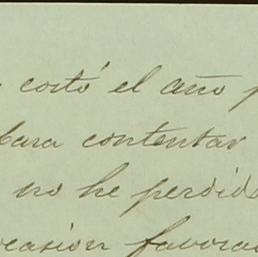 costó el año
para contentar
no he perdido
ocasion favora